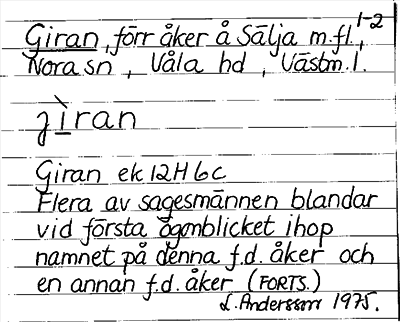 1-2
Giran, förr åker å Sälja m.fl.,
Nora sn, Våla hd, Västm.l.
gìran
Giran ek 12H6c
Flera av sagesmännen blandar
vid första ögonblicket ihop
namnet på denna f.d. åker och
en annan f.d. åker (FORTS.)
L. Andersson 1975.